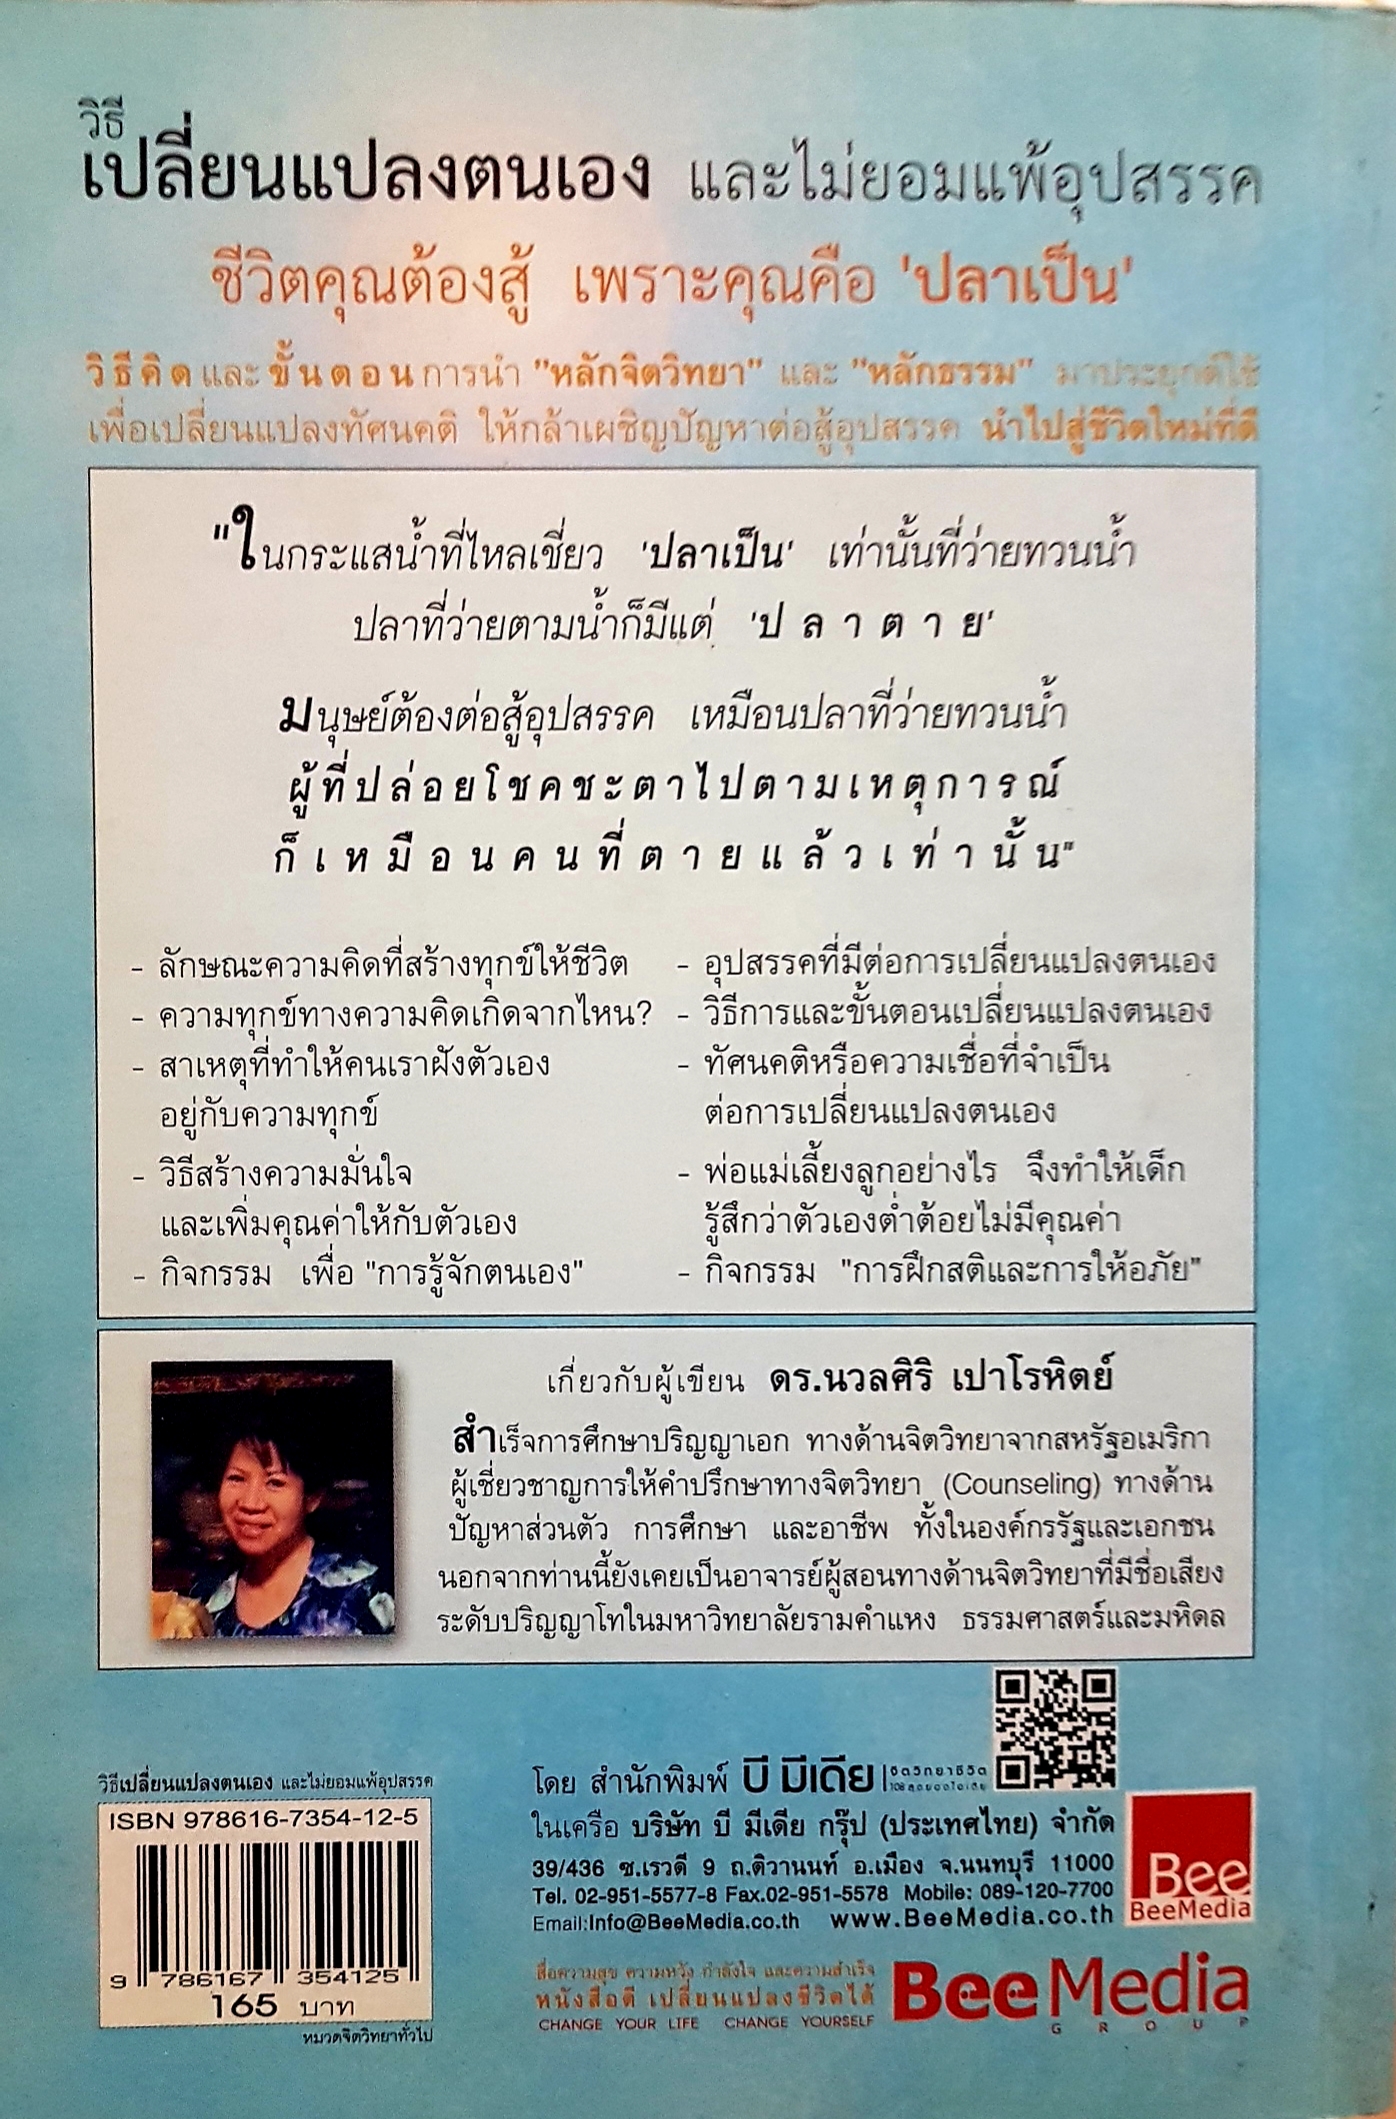 วิธี
เปลี่ยนแปลงตนเอง และไม่ยอมแพ้อุปสรรค
ชีวิตคุณต้องสู้ เพราะคุณคือ 'ปลาเป็น'
วิธีคิดและขั้นตอนการนำ "หลักจิตวิทยา" และ "หลักธรรม" มาประยุกต์ใช้
เพื่อเปลี่ยนแปลงทัศนคติ ให้กล้าเผชิญปัญหาต่อสู้อุปสรรค นำไปสู่ชีวิตใหม่ที่ดี
"ในกระแสน้ำที่ไหลเชี่ยว 'ปลาเป็น' เท่านั้นที่ว่ายทวนน้ำ
ปลาที่ว่ายตามน้ำก็มีแต่ 'ปลาตาย'
มนุษย์ต้องต่อสู้อุปสรรค เหมือนปลาที่ว่ายทวนน้ำ
ผู้ที่ปล่อยโชคชะตาไปตามเหตุการณ์
ก็เหมือนคนที่ตายแล้วเท่านั้น"
- ลักษณะความคิดที่สร้างทุกข์ให้ชีวิต
- ความทุกข์ทางความคิดเกิดจากไหน?
- สาเหตุที่ทำให้คนเราฝังตัวเอง
อยู่กับความทุกข์
- วิธีสร้างความมั่นใจ
และเพิ่มคุณค่าให้กับตัวเอง
- กิจกรรม เพื่อ "การรู้จักตนเอง"
- อุปสรรคที่มีต่อการเปลี่ยนแปลงตนเอง
- วิธีการและขั้นตอนเปลี่ยนแปลงตนเอง
- ทัศนคติหรือความเชื่อที่จำเป็น
ต่อการเปลี่ยนแปลงตนเอง
- พ่อแม่เลี้ยงลูกอย่างไร จึงทำให้เด็ก
รู้สึกว่าตัวเองต่ำต้อยไม่มีคุณค่า
- กิจกรรม "การฝึกสติและการให้อภัย"
เกี่ยวกับผู้เขียน ดร.นวลศิริ เปาโรหิตย์
สำเร็จการศึกษาปริญญาเอก ทางด้านจิตวิทยาจากสหรัฐอเมริกา
ผู้เชี่ยวชาญการให้คำปรึกษาทางจิตวิทยา (Counseling) ทางด้าน
ปัญหาส่วนตัว การศึกษา และอาชีพ ทั้งในองค์กรรัฐและเอกชน
นอกจากท่านนี้ยังเคยเป็นอาจารย์ผู้สอนทางด้านจิตวิทยาที่มีชื่อเสียง
ระดับปริญญาโทในมหาวิทยาลัยรามคำแหง ธรรมศาสตร์และมหิดล
วิธีเปลี่ยนแปลงตนเอง และไม่ยอมแพ้อุปสรรค
ISBN 978616-7354-12-5
9 786167 354125
165 บาท
หมวดจิตวิทยาทั่วไป
โดย สำนักพิมพ์ บี มีเดีย
จิตวิทยาชีวิต
ในเครือ บริษัท บี มีเดีย กรุ๊ป (ประเทศไทย) จำกัด
39/436 ซ.เรวดี 9 ถ.ติวานนท์ อ.เมือง จ.นนทบุรี 11000
Tel. 02-951-5577-8 Fax.02-951-5578 Mobile: 089-120-7700
Email:Info@BeeMedia.co.th www.BeeMedia.co.th
Bee
BeeMedia
สื่อความสุข ความหวัง กำลังใจ และความสำเร็จ
หนังสือดี เปลี่ยนแปลงชีวิตได้
CHANGE YOUR LIFE CHANGE YOURSELF
BeeMedia
GROUP